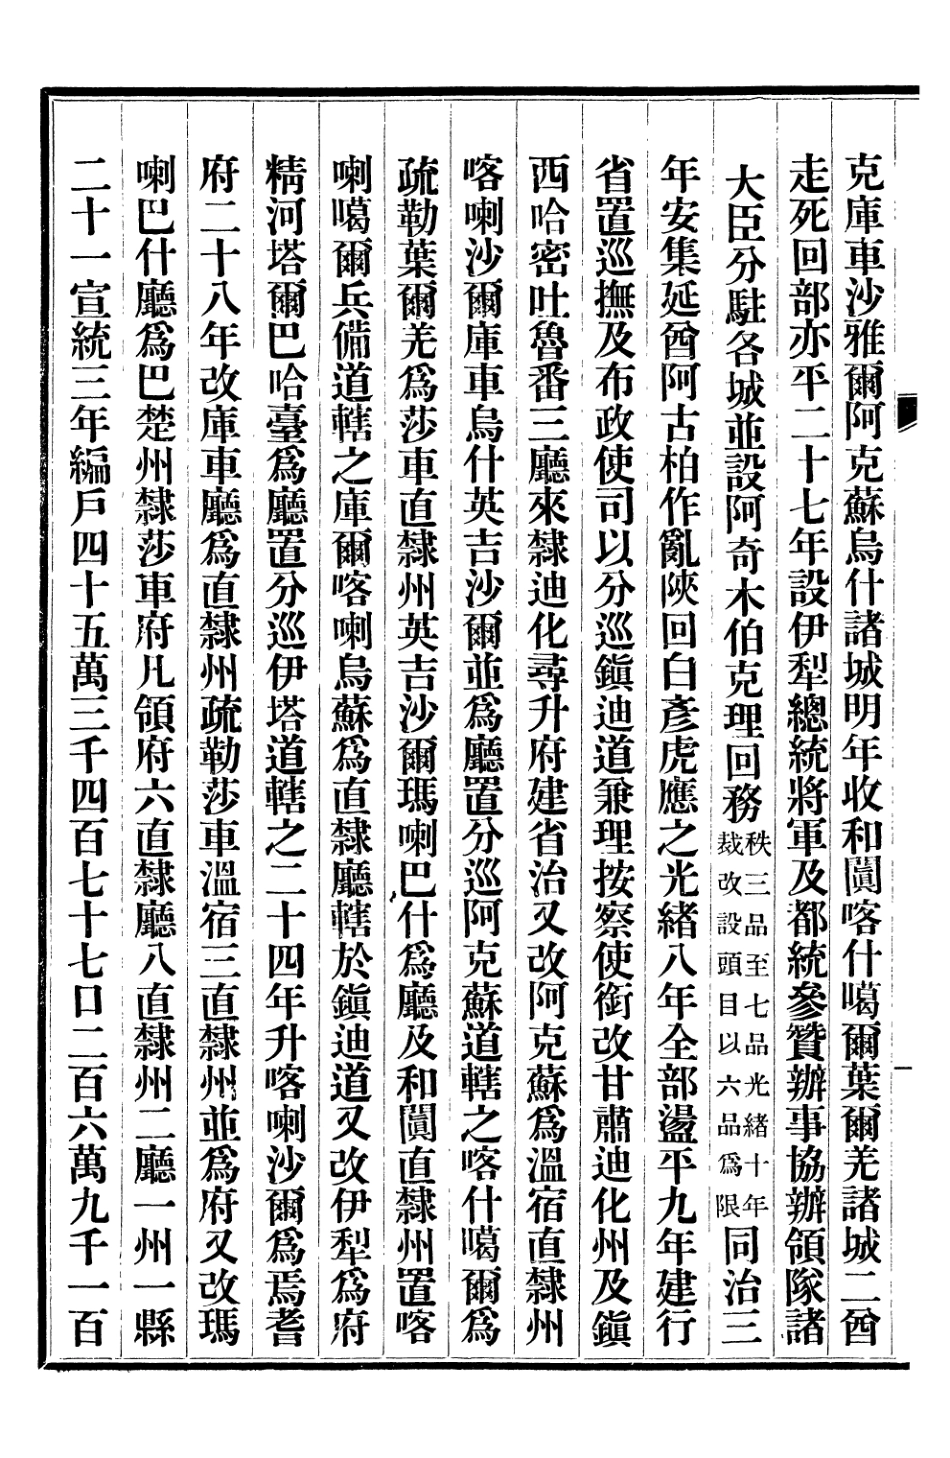 克庫車沙雅爾阿克蘇烏什諸城明年收和闐喀什噶爾葉爾羌諸城二酋
走死回部亦平二十七年設伊犁總統將軍及都統參贊辦事協辦領隊諸
大臣分駐各城並設阿奇木伯克理回務秩三品至七品光緒十年裁改設頭目以六品爲限同治三
年安集延酋阿古柏作亂陝回白彥虎應之光緒八年全部盪平九年建行
省置巡撫及布政使司以分巡鎭迪道兼理按察使銜改甘肅迪化州及鎭
西哈密吐魯番三廳來隸迪化尋升府建省治又改阿克蘇爲溫宿直隸州
喀喇沙爾庫車烏什英吉沙爾並爲廳置分巡阿克蘇道轄之喀什噶爾爲
疏勒葉爾羌爲莎車直隸州英吉沙爾瑪喇巴什爲廳及和闐直隸州置喀
喇噶爾兵備道轄之庫爾喀喇烏蘇爲直隸廳轄於鎭迪道又改伊犁爲府
精河塔爾巴哈臺爲廳置分巡伊塔道轄之二十四年升喀喇沙爾爲焉耆
府二十八年改庫車廳爲直隸州疏勒莎車溫宿三直隸州並爲府又改瑪
喇巴什廳爲巴楚州隸莎車府凡領府六直隸廳八直隸州二廳一州一縣
二十一宣統三年編戶四十五萬三千四百七十七口二百六萬九千一百